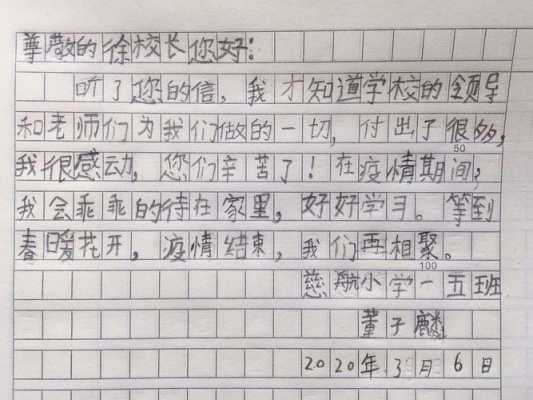 尊敬的徐校长您好：
听了您的信，我才知道学校的领导
和老师们为我们做的一切，付出了很多，
50
我很感动，您们辛苦了！在疫情期间，
我会乖乖的待在家里，好好学习。等到
春暖花开，疫情结束，我们再相聚。
100
慈航小学一五班
董子麟
2020年3月6日